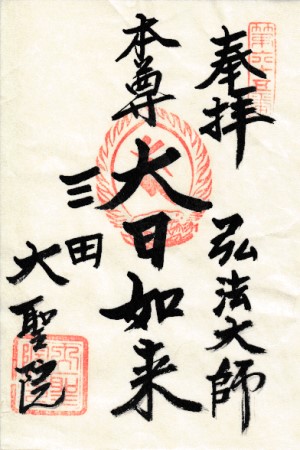 奉拝
弘法大師
本尊
大日如来
三田
大聖院